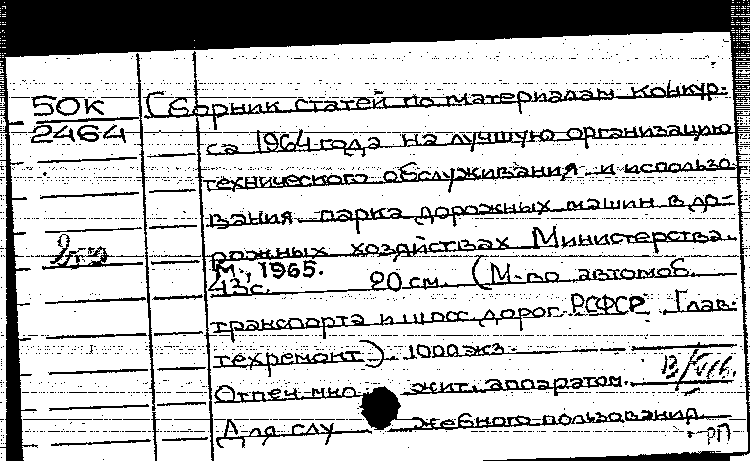 50К
2464
Сборник статей по материалам конкур-
са 1964 года на лучшую организацию
технического обслуживания и использо-
вания парка дорожных машин в до-
рожных хозяйствах Министерства.
М., 1965.
43с. 20 см. (М-во автомоб.
транспорта и шосс. дорог РСФСР. Глав-
техремонт). 1000 экз.
Отпеч. мно жит. аппаратом.
Для слу жебного пользования.
РП